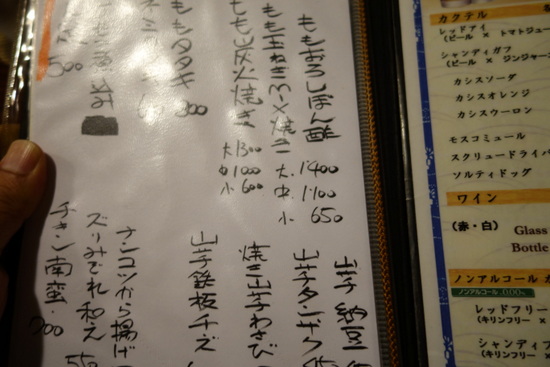 ももおろしぽん酢
大. 1400
中. 1100
小 650
もも玉ねぎ
もも炭火焼き
大 1300
中 1000
小 600
ももタタキ
500
山芋 納豆
山芋タンザク
焼き山芋わさび
山芋鉄板チーズ
ナンコツから揚げ
ズリみぞれ和え
550
チキン南蛮. 700
カクテル
レッドアイ
(ビール × トマトジュー
シャンディガフ
(ビール × ジンジャー
カシスソーダ
カシスオレンジ
カシスウーロン
モスコミュール
スクリュードライバ
ソルティドッグ
ワイン
(赤・白) Glass
Bottle
ノンアルコール カ
ノンアルコール 0.00%
レッドフリー
(キリンフリー ×
シャンディ
(キリンフリー ×